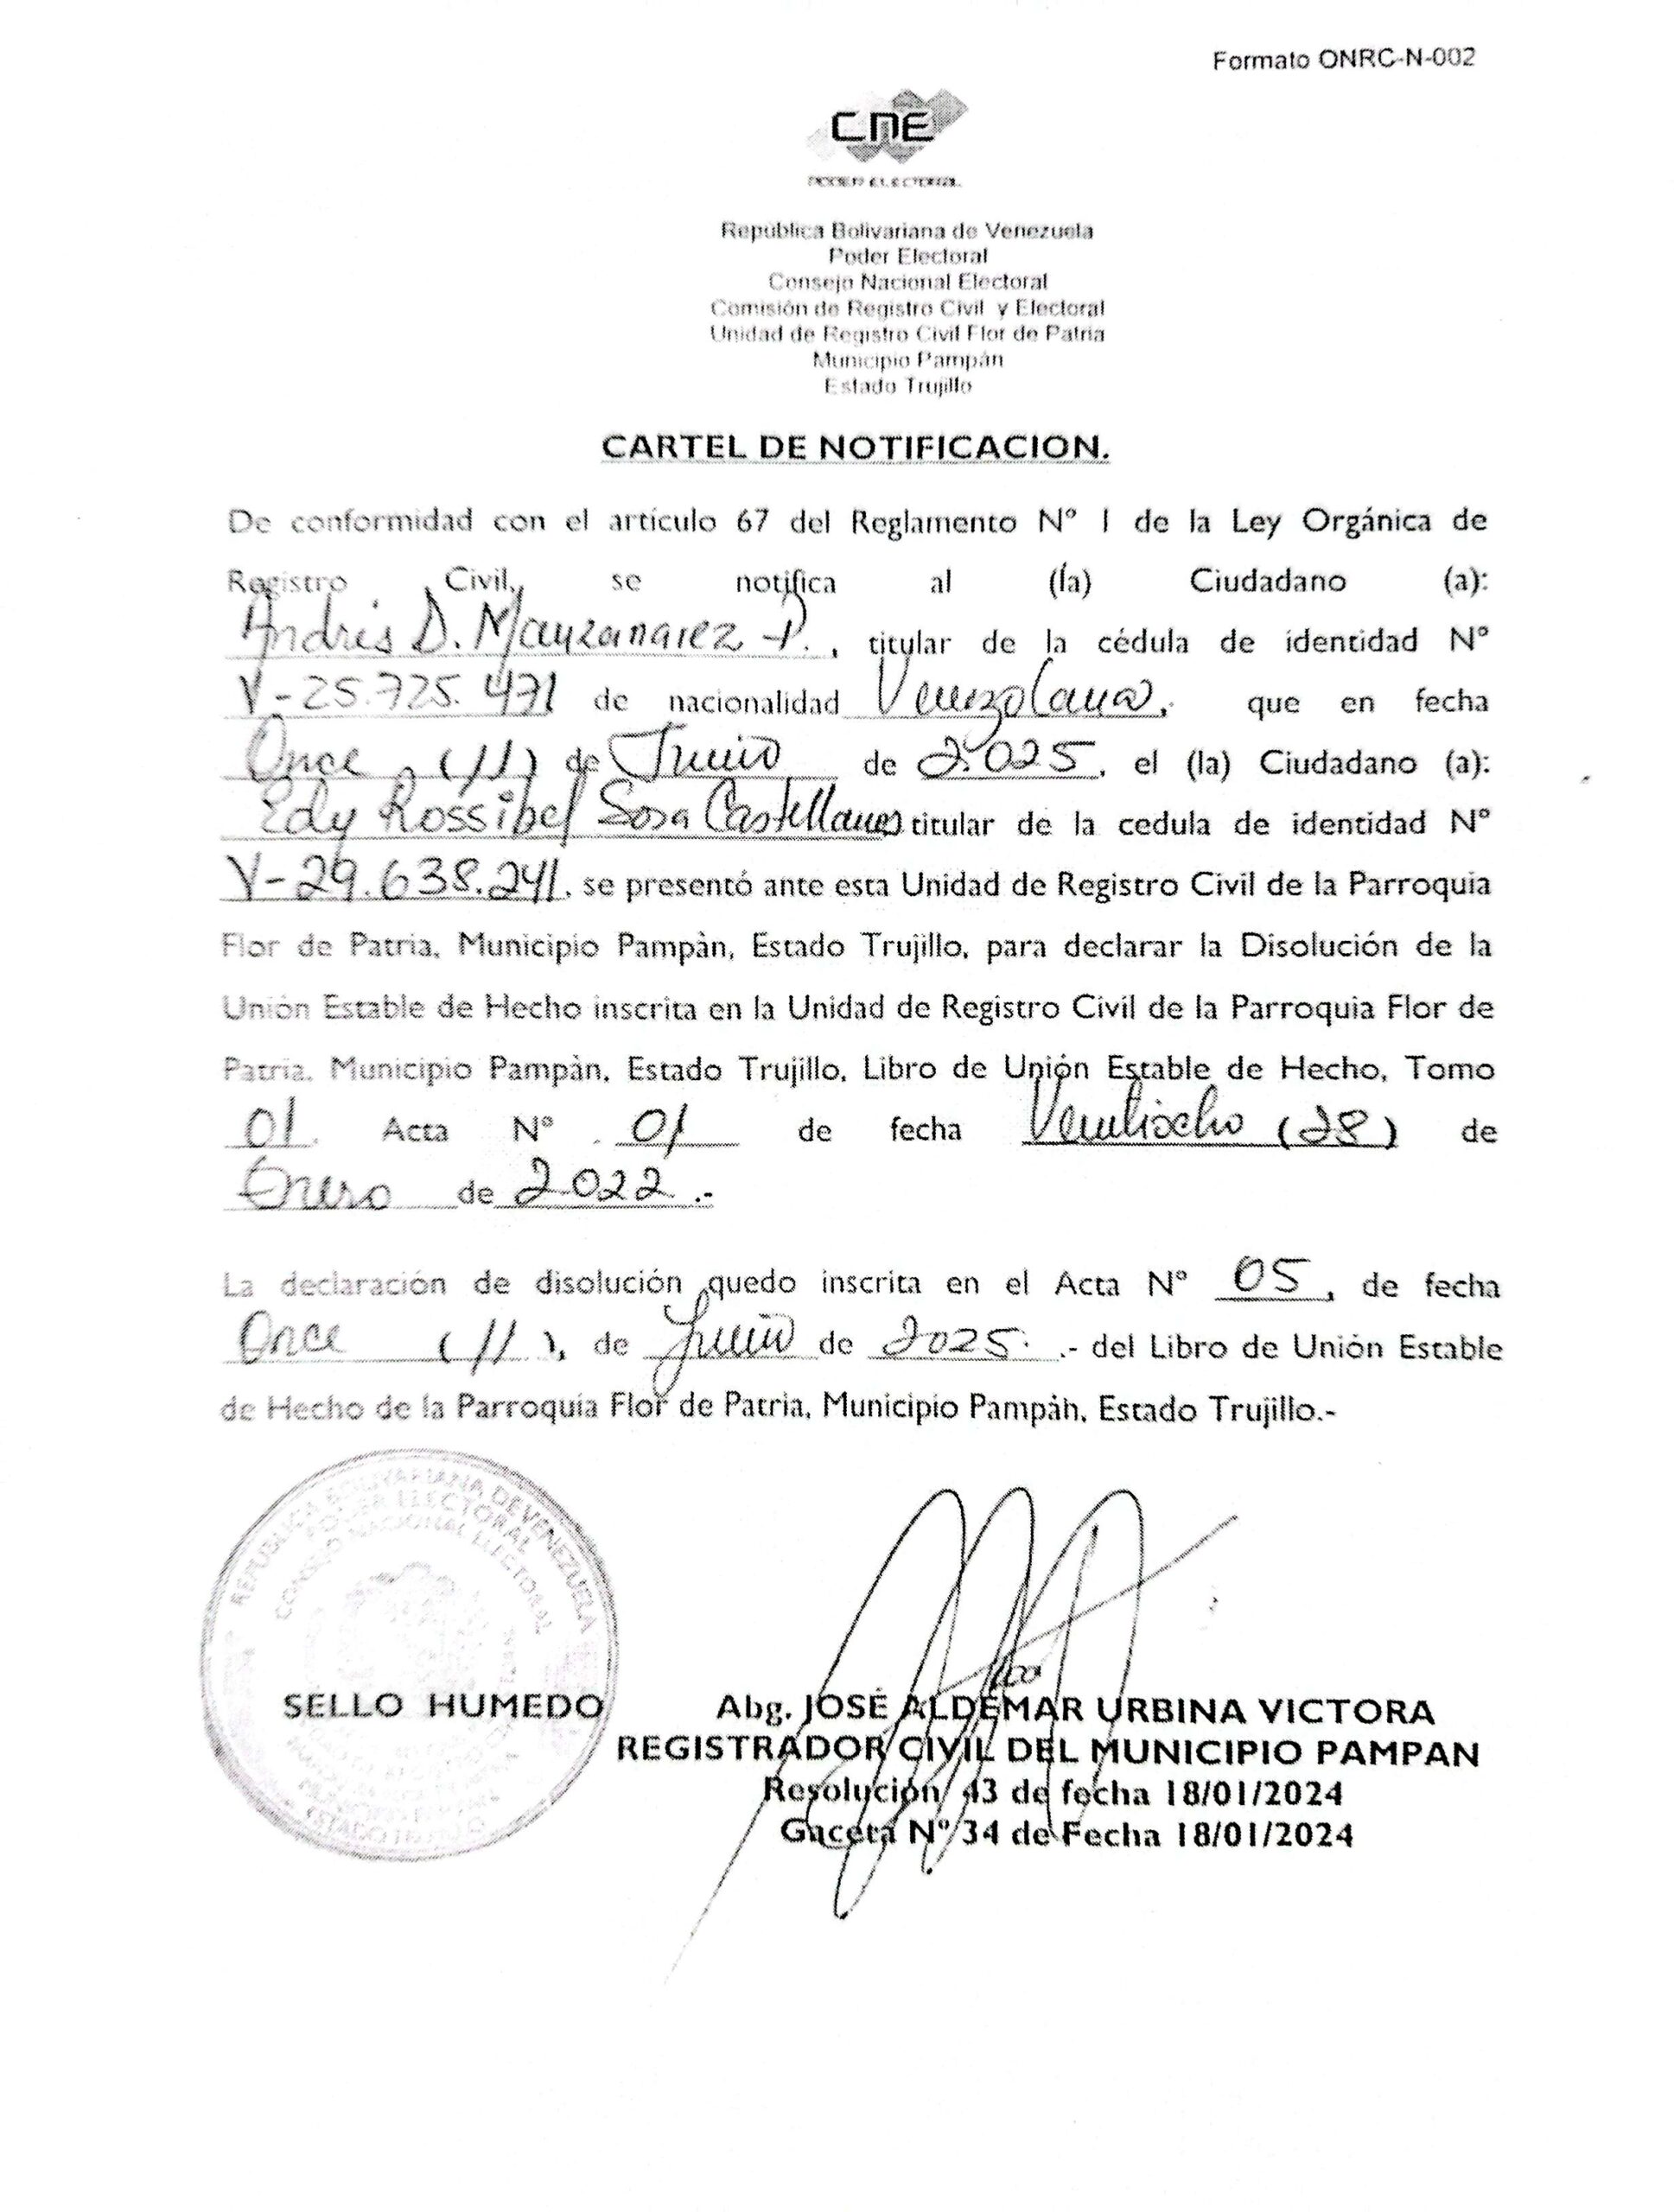 Formato ONRC-N-002
CNE
PODER ELECTORAL
República Bolivariana de Venezuela
Poder Electoral
Consejo Nacional Electoral
Comisión de Registro Civil y Electoral
Unidad de Registro Civil Flor de Patria
Municipio Pampán
Estado Trujillo
CARTEL DE NOTIFICACION.
De conformidad con el artículo 67 del Reglamento Nº 1 de la Ley Orgánica de
Registro Civil, se notifica al (la) Ciudadano (a):
Andrés D. Manzanarez P., titular de la cédula de identidad Nº
V-25.725.471 de nacionalidad Venezolana, que en fecha
Once (11) de Junio de 2.025, el (la) Ciudadano (a):
Edy Rossibel Sosa Castellanos titular de la cedula de identidad Nº
V-29.638.241, se presentó ante esta Unidad de Registro Civil de la Parroquia
Flor de Patria, Municipio Pampàn, Estado Trujillo, para declarar la Disolución de la
Unión Estable de Hecho inscrita en la Unidad de Registro Civil de la Parroquia Flor de
Patria, Municipio Pampàn, Estado Trujillo, Libro de Unión Estable de Hecho, Tomo
01. Acta Nº 01 de fecha Ventiocho (28) de
Enero de 2.022.-
La declaración de disolución quedo inscrita en el Acta Nº 05, de fecha
Once (11), de Junio de 2025. .- del Libro de Unión Estable
de Hecho de la Parroquia Flor de Patria, Municipio Pampàn, Estado Trujillo.-
REPUBLICA BOLIVARIANA DE VENEZUELA
PODER ELECTORAL
CONSEJO NACIONAL ELECTORAL
SELLO HUMEDO
Abg. JOSÉ ALDEMAR URBINA VICTORA
REGISTRADOR CIVIL DEL MUNICIPIO PAMPAN
Resolución 43 de fecha 18/01/2024
Gaceta Nº 34 de Fecha 18/01/2024